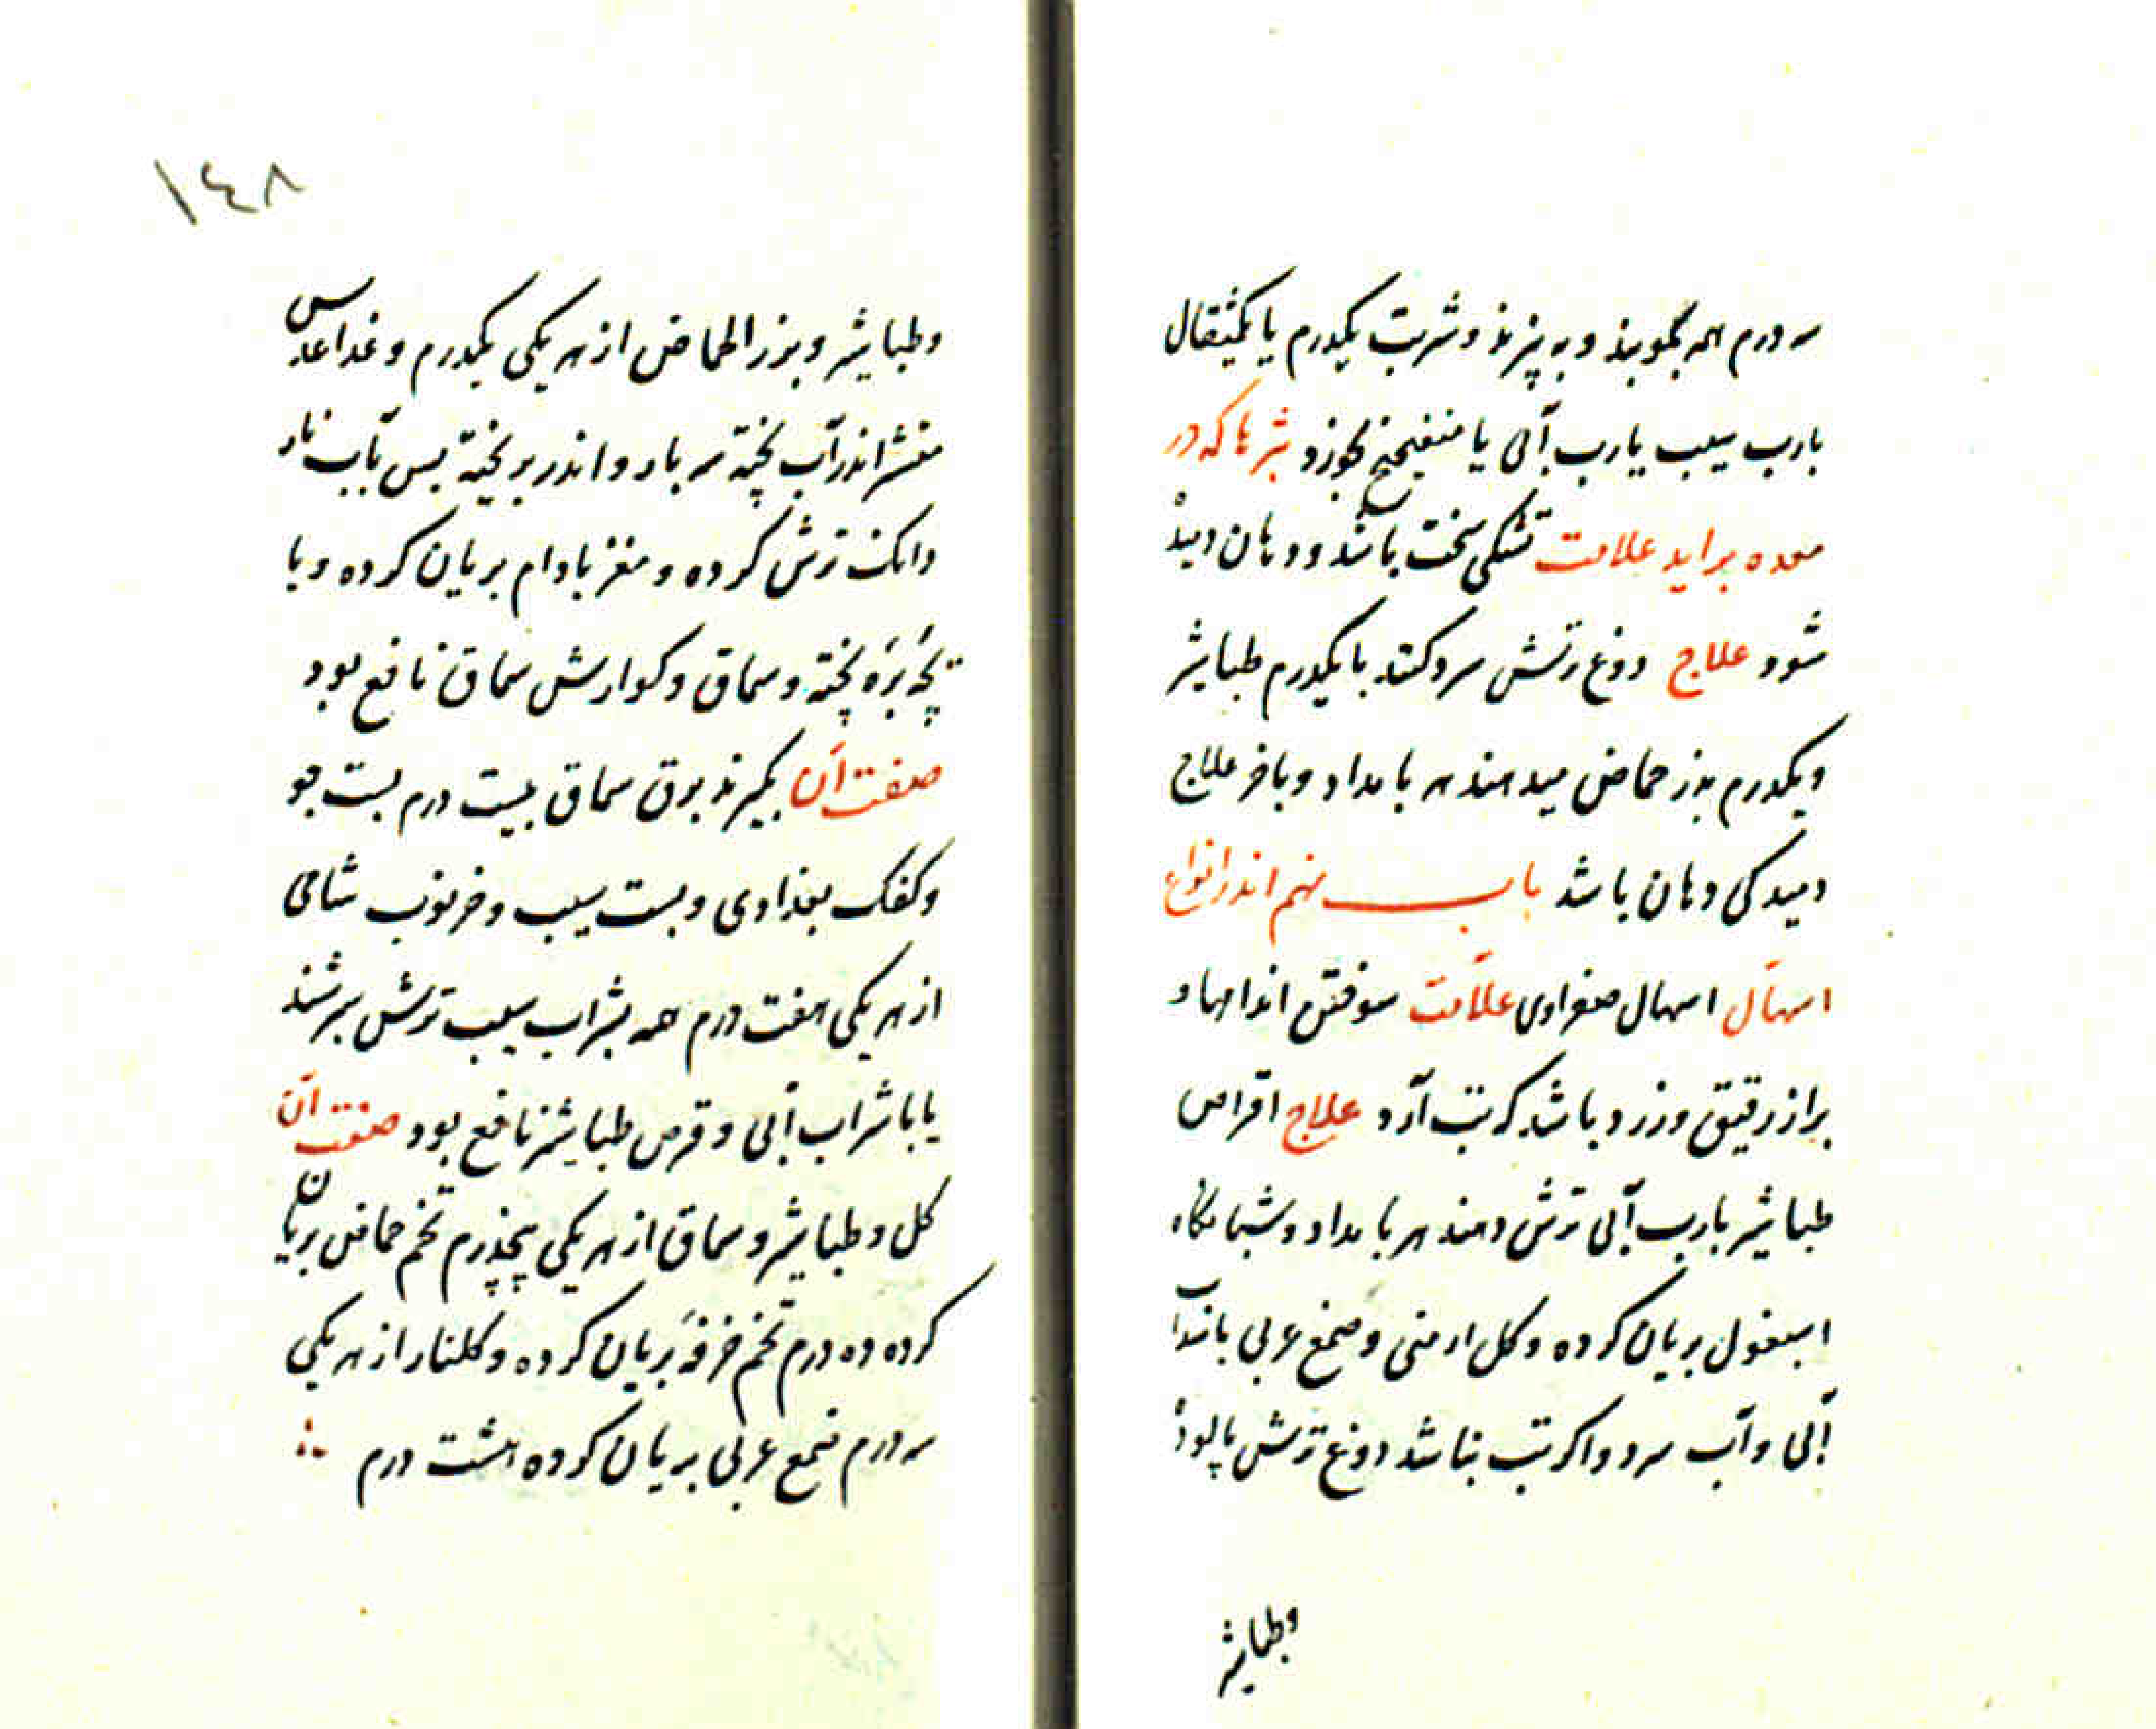 سه درم همه بکوبند و به پزند و شربت یکدرم یا یکمثقال
بارب سیب یا رب آبی یا میفختج بخورد بثرها که در
معده براید علامت تشنکی سخت باشد و دهان دمیده
شود علاج دوغ ترش سرد کنند با یکدرم طباشیر
و یکدرم بزر حماض میدهند هر بامداد و باخر علاج
دمیدکی دهان باشد باب نهم اندر انواع
اسهال اسهال صفراوی علامت سوختن اندامها و
براز رقیق و زرد باشد که تب آرد علاج اقراص
طباشیر بارب آبی ترش دهند هر بامداد و شبانکاه
اسبغول بریان کرده و کل ارمنی و صمغ عربی باشراب
آبی و آب سرد و اکر تب نباشد دوغ ترش پالوده
وطباشیر
١٤٨
وطباشیر و بزر الحماض از هر یکی یکدرم و غدا عدس
مقشر اندر آب پخته سه بار و اندر بریخته پس بآب نار
دانک ترش کرده و مغز بادام بریان کرده و با
پخته و سماق و کوارش سماق نافع بود
صفت آن بکیرند بوق سماق بیست درم بست جو
و کعک بغدادی و بست سیب و خرنوب شامی
از هر یکی هفت درم همه بشراب سیب ترش بسرشند
یا باشراب آبی و قرص طباشیر نافع بود صفت آن
کل و طباشیر و سماق از هر یکی پنجدرم تخم حماض بریان
کرده ده درم تخم خرفه بریان کرده و کلنار از هر یکی
سه درم صمغ عربی بریان کرده هشت درم